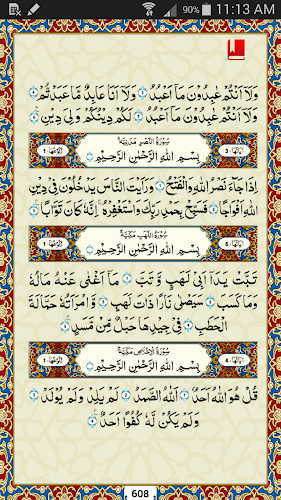 90% 11:13 AM
وَلَا أَنْتُمْ عٰبِدُونَ مَا أَعْبُدُ ﴿٣﴾ وَلَا أَنَا عَابِدٌ مَّا عَبَدْتُّمْ ﴿٤﴾
وَلَا أَنْتُمْ عٰبِدُونَ مَا أَعْبُدُ ﴿٥﴾ لَكُمْ دِينُكُمْ وَلِيَ دِينِ ﴿٦﴾
سُورَةُ النَّصْرِ مَدَنِيَّةٌ
بِسْمِ اللهِ الرَّحْمٰنِ الرَّحِيْمِ
إِذَا جَاءَ نَصْرُ اللهِ وَالْفَتْحُ ﴿١﴾ وَرَأَيْتَ النَّاسَ يَدْخُلُونَ فِي دِينِ
اللهِ أَفْوَاجًا ﴿٢﴾ فَسَبِّحْ بِحَمْدِ رَبِّكَ وَاسْتَغْفِرْهُ إِنَّهُ كَانَ تَوَّابًا ﴿٣﴾
سُورَةُ اللَّهَبِ مَكِّيَّةٌ
بِسْمِ اللهِ الرَّحْمٰنِ الرَّحِيْمِ
تَبَّتْ يَدَا أَبِي لَهَبٍ وَّتَبَّ ﴿١﴾ مَا أَغْنٰى عَنْهُ مَالُهُ
وَمَا كَسَبَ ﴿٢﴾ سَيَصْلٰى نَارًا ذَاتَ لَهَبٍ ﴿٣﴾ وَّامْرَأَتُهُ حَمَّالَةَ
الْحَطَبِ ﴿٤﴾ فِي جِيدِهَا حَبْلٌ مِّنْ مَّسَدٍ ﴿٥﴾
سُورَةُ الْإِخْلَاصِ مَكِّيَّةٌ
بِسْمِ اللهِ الرَّحْمٰنِ الرَّحِيْمِ
قُلْ هُوَ اللهُ أَحَدٌ ﴿١﴾ اللهُ الصَّمَدُ ﴿٢﴾ لَمْ يَلِدْ وَلَمْ يُولَدْ ﴿٣﴾
وَلَمْ يَكُنْ لَّهُ كُفُوًا أَحَدٌ ﴿٤﴾
608